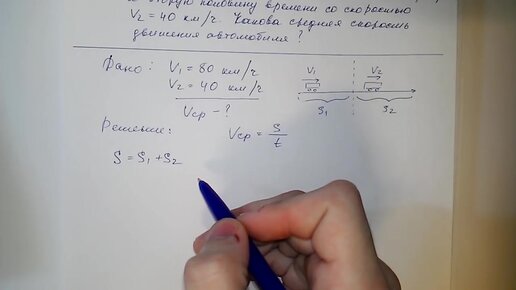 а вторую половину времени со скоростью
V2 = 40 км/ч. Какова средняя скорость
движения автомобиля?
Дано: V1 = 80 км/ч
V2 = 40 км/ч
Vср - ?
V1 V2
S1 S2
Решение: Vср = S/t
S = S1 + S2